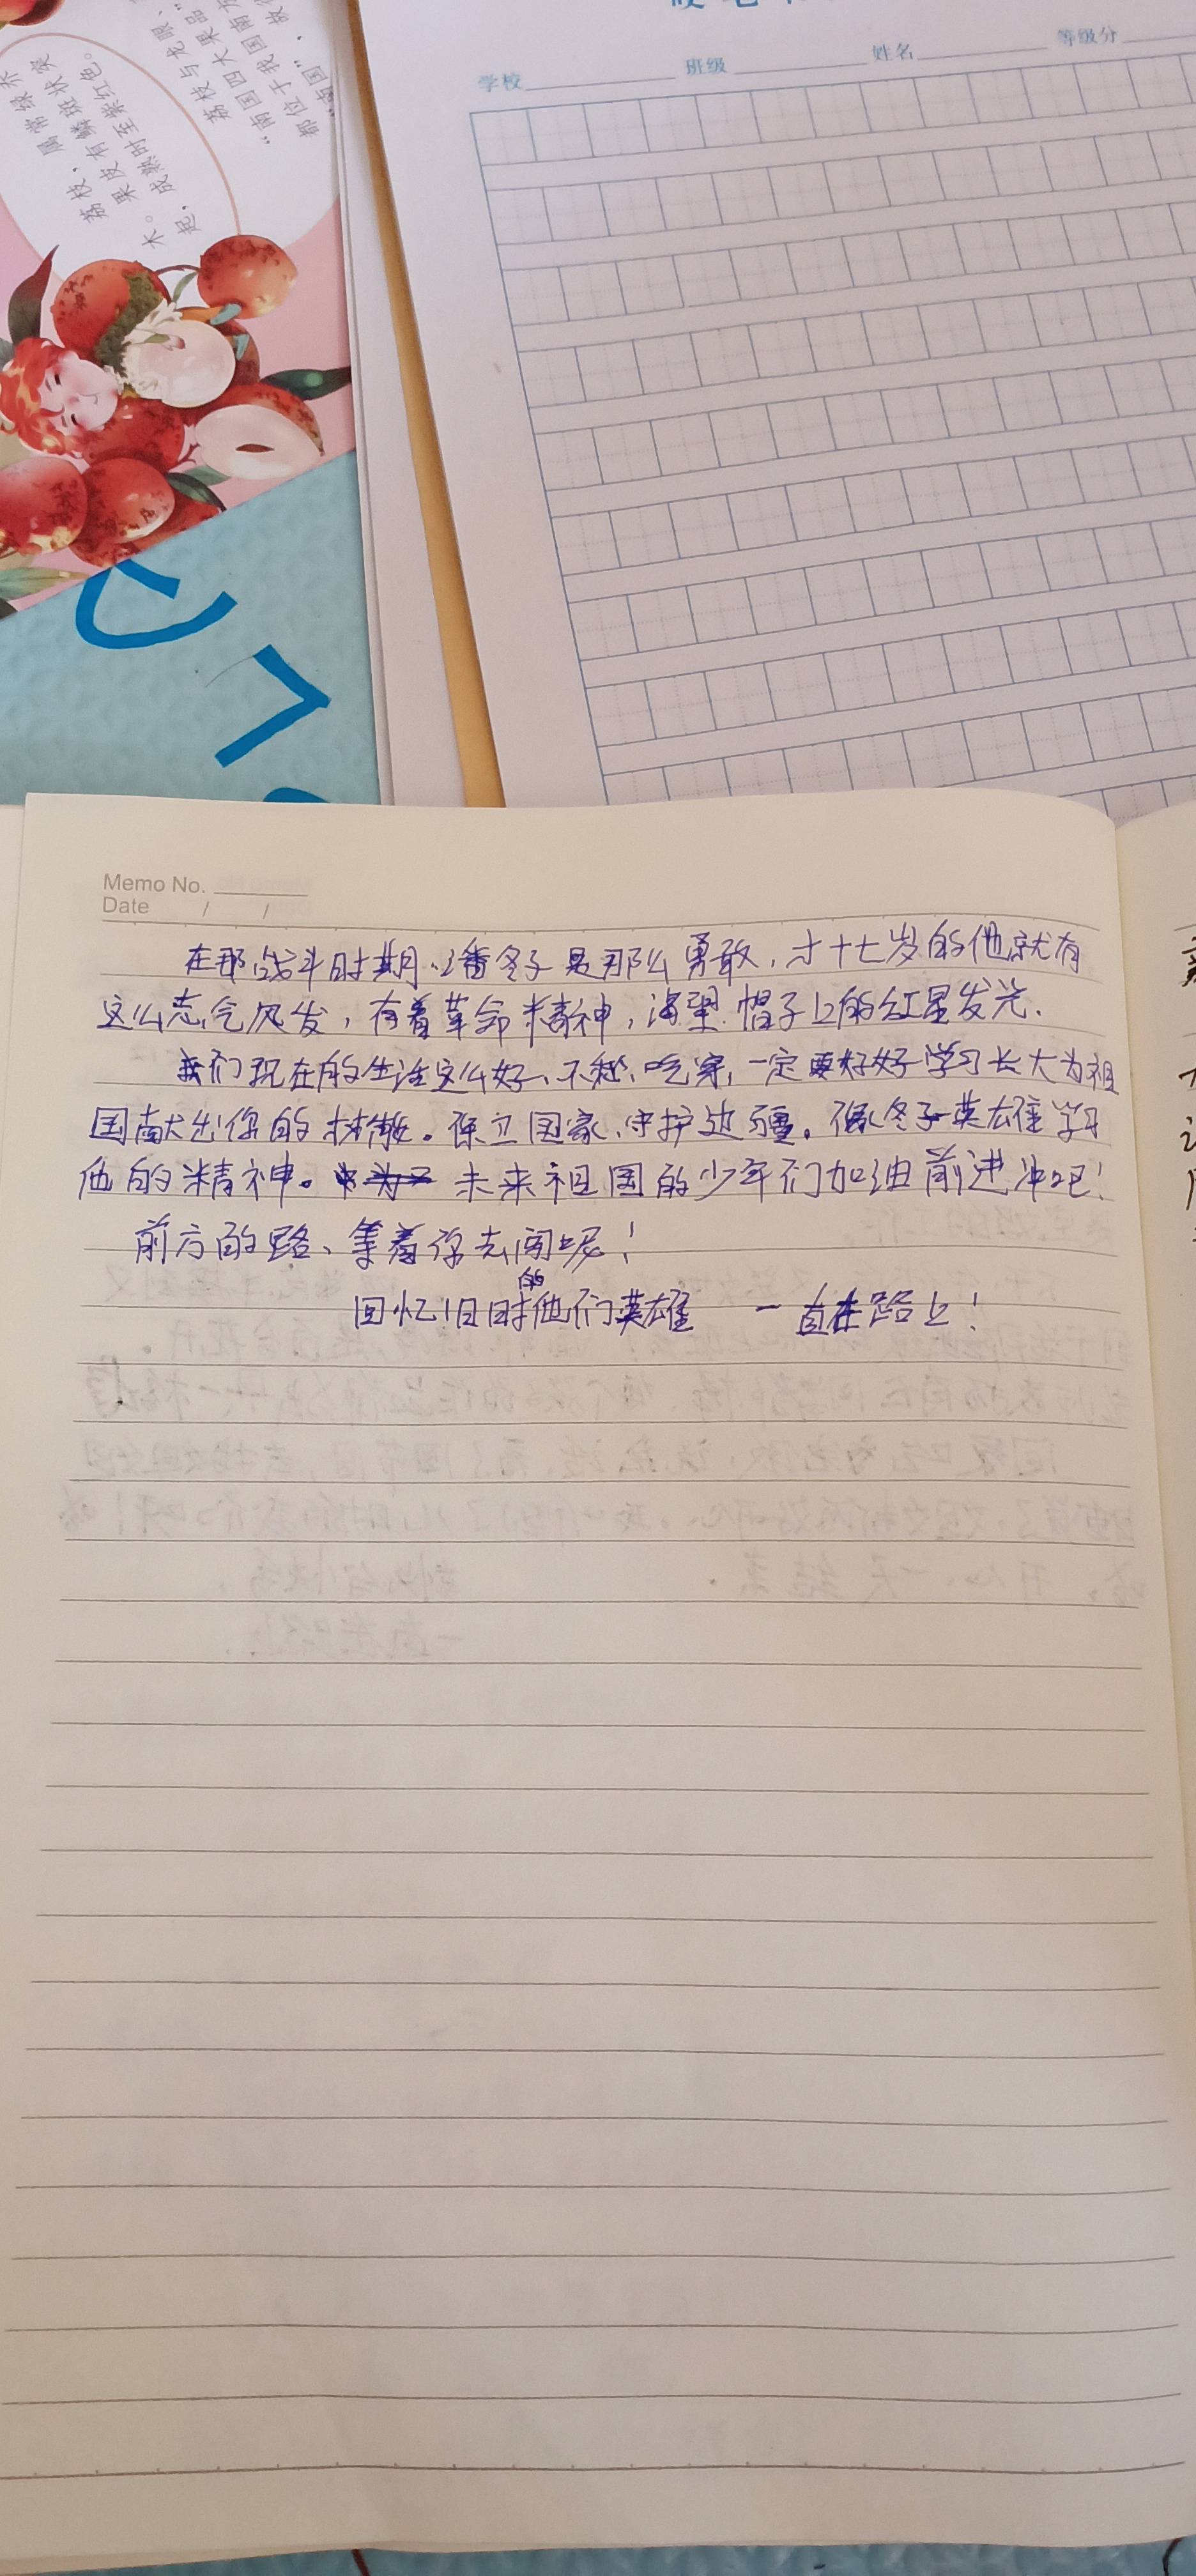 荔枝，属常绿乔
木。果皮有鳞斑状突
起，成熟时至紫红色。
荔枝与龙眼、
"南国四大果品"
都位于我国南方
"南国"，故
学校 班级 姓名 等级分
Memo No.
Date / /
在那战斗时期、潘冬子是那么勇敢，才十七岁的他就有
这么志气风发，有着革命精神，渴望帽子上的红星发光.
我们现在的生活这么好、不愁、吃穿，一定要好好学习长大为祖
国献出你的。保卫国家、守护边疆。像冬子英雄学习
他的精神。未来祖国的少年们加油前进冲吧！
前方的路、等着你去闯呢！
回忆旧时的他们英雄 一直在路上！